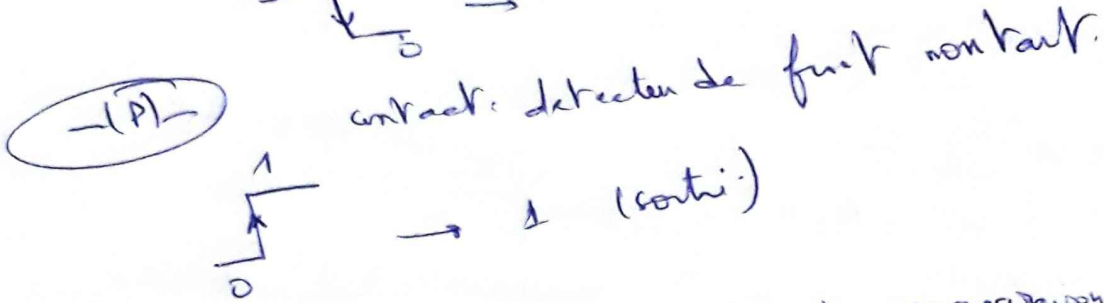 0
-(P)- contact. detecteu de front montant.
1
0 → 1 (sorti.)